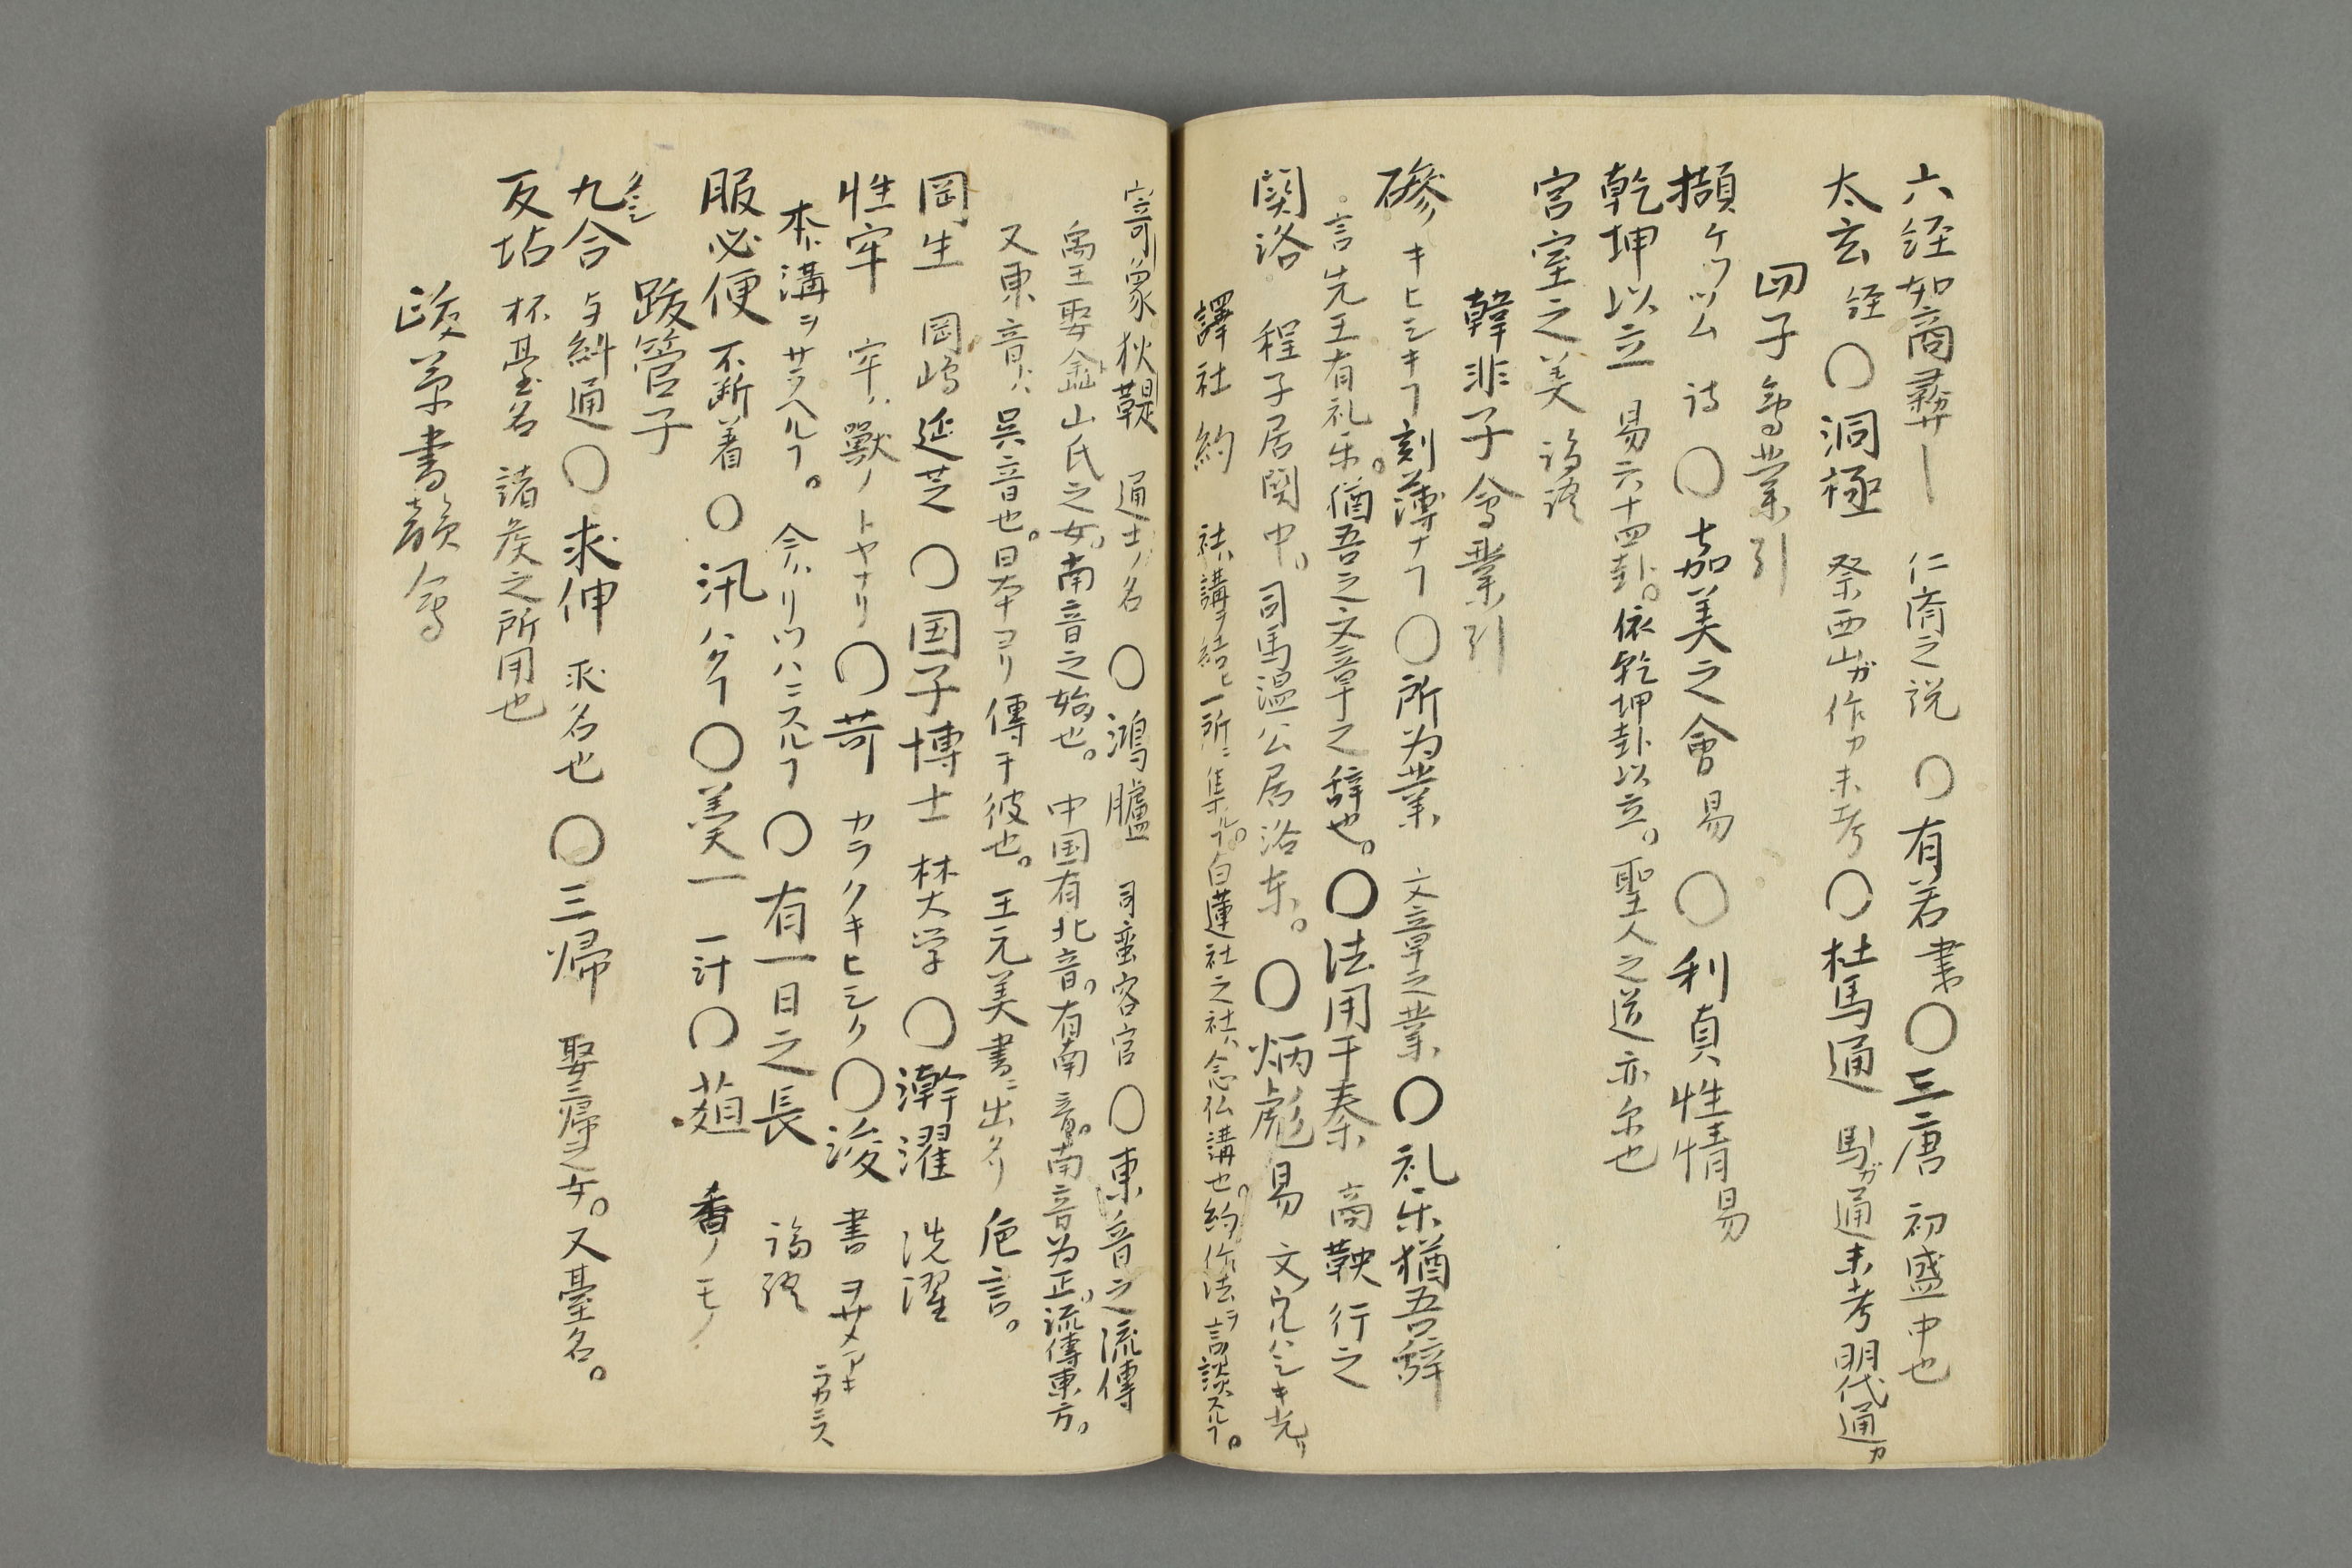 六経如商彝〡 仁斎之説 〇有若書〇三唐 初盛中也
太玄経〇洞極 祭西山ガ作カ未考〇杜馬通 馬ガ通未考明代通カ
四子會業引
擷ケツツム 詩〇嘉美之會 易〇利貞性情 易
乾坤以立 易六十四卦。依乾坤卦以立。聖人之道亦尔也
宮室之美 論語
韓非子會業引
磣キヒシキヿ刻薄ナヿ〇所为業 文章之業〇礼乐猶吾辤
言先王有礼乐。猶吾之文章之辞也。〇法用于秦 商鞅行之
関洛 程子居関中。司馬温公居洛东。〇炳彪 易 文ウルハシキ光リ
譯社約 社ハ講ヲ結ヒ一所ニ集ルヿ。白蓮社之社ハ念仏講也。約作法ヲ言談スルヿ。
寄象狄鞮 通士ノ名〇鴻臚 司蛮客官〇東音之流傳
禹王娶𡍼山氏之女。南音之始也。中国有北音。有南音。南音为正。流傳東方。
又東音ハ呉音也。日本ヨリ傳于彼也。王元美書ニ出タリ 巵言。
岡生 岡嶋延芝〇国子博士 林大学〇澣濯 洗濯
性牢 牢ハ獣ノトヤナリ〇苛 カラクキヒシク〇浚 書 ヲサメアキラカニス
本ハ溝ヲサラヘルヿ。今ハリツハニスルヿ〇有一日之長 論語
服必便 不断着〇汛ハクヿ〇羙一 一汁〇葅 香ノモノ
跋管子
九合 タヽシ 与糾通〇求伸 求名也〇三帰 娶三帰之女。又臺名。
反坫 杯臺名 諸矦之所用也
跋草書韻會